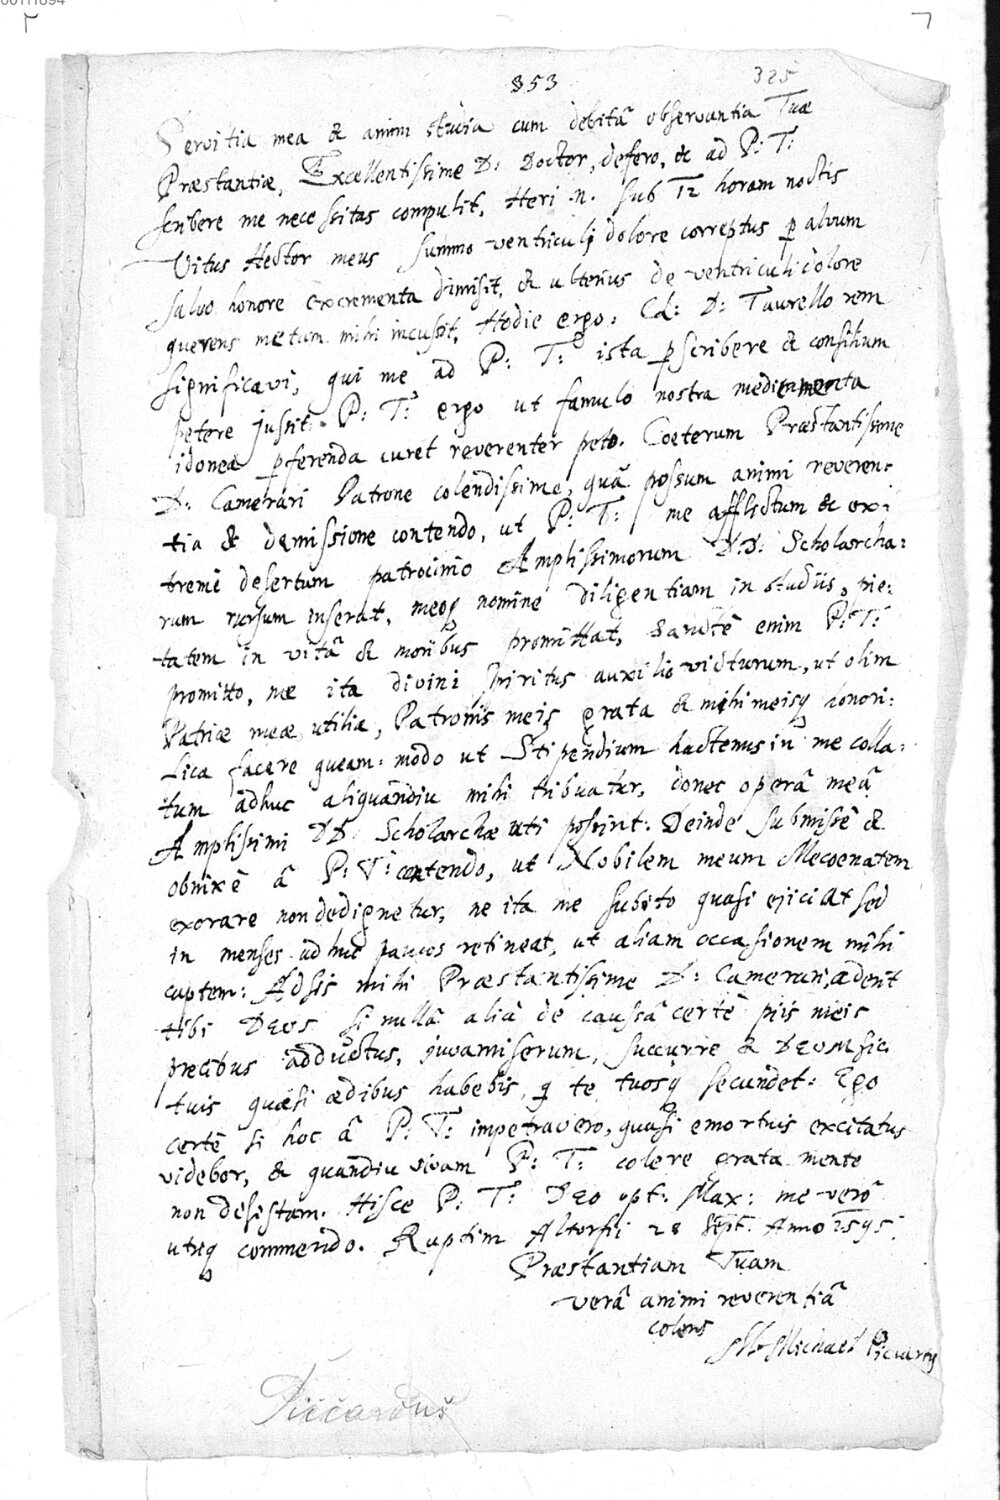 00111894
353
325
Servitia mea & animi studia cum debitâ observantia Tuæ
Præstantiæ, Excellentissime D: Doctor, defero, & ad P: T:
scribere me necessitas compulit, Heri .n. sub 12 horam noctis
Vitus Hector meus summo ventriculj dolore correptus p alvum
salvo honore excrementa dimisit, & ulterius de ventriculi dolore
querens metum mihi incussit, Hodie ergo: Cl: D: Taurello rem
significavi, qui me ad P: T: ista pscribere & consilium
petere jussit. P: T: ergo ut famulo nostra medicamenta
idonea pferenda curet reverenter peto. Coeterum Præstantissime
D: Camerari Patrone colendissime, quâ possum animi reveren:
tia & demissione contendo, ut P: T: me afflictum & ex:
tremè desertum patrocinio Amplissimorum DD: Scholarcha:
rum rursum inserat, meoq nomine diligentiam in studiis, pie:
tatem in vitâ & moribus promittat, Sanctè enim P: T:
promitto, me ita divini spiritus auxilio victurum, ut olim
Patriæ meæ utilia, Patronis meis grata & mihi meisq honori:
fica facere queam: modo ut Stipendium hactenus in me colla:
tum adhuc aliquandiu mihi tribuatur, donec operâ meâ
Amplissimi DD: Scholarchæ uti possint: Deinde submissè &
obnixè â P: T: contendo, ut Nobilem meum Mecoenatem
exorare non dedignetur, ne ita me subito quasi ejiciat sed
in menses adhuc paucos retineat, ut aliam occasionem mihi
captem: Adsis mihi Præstantissime D: Camerari, aderit
tibi DEUS si nullâ aliâ de caussâ certè piis meis
precibus adductus, juva miserum, succurre & DEUM sic
tuis quasi ædibus habebis, q te tuosq secundet: Ego
certè si hoc â P: T: impetravero, quasi emortuis excitatus
videbor, & quandiu vivam P: T: colere grata mente
non desistam. Hisce P: T: DEO opt: Max: me verò
utriq commendo. Raptim Altorfii 28 Sept. Anno 1595.
Præstantiam Tuam
verâ animi reverentiâ
colens
M. Michael Piccartq
Piccardus